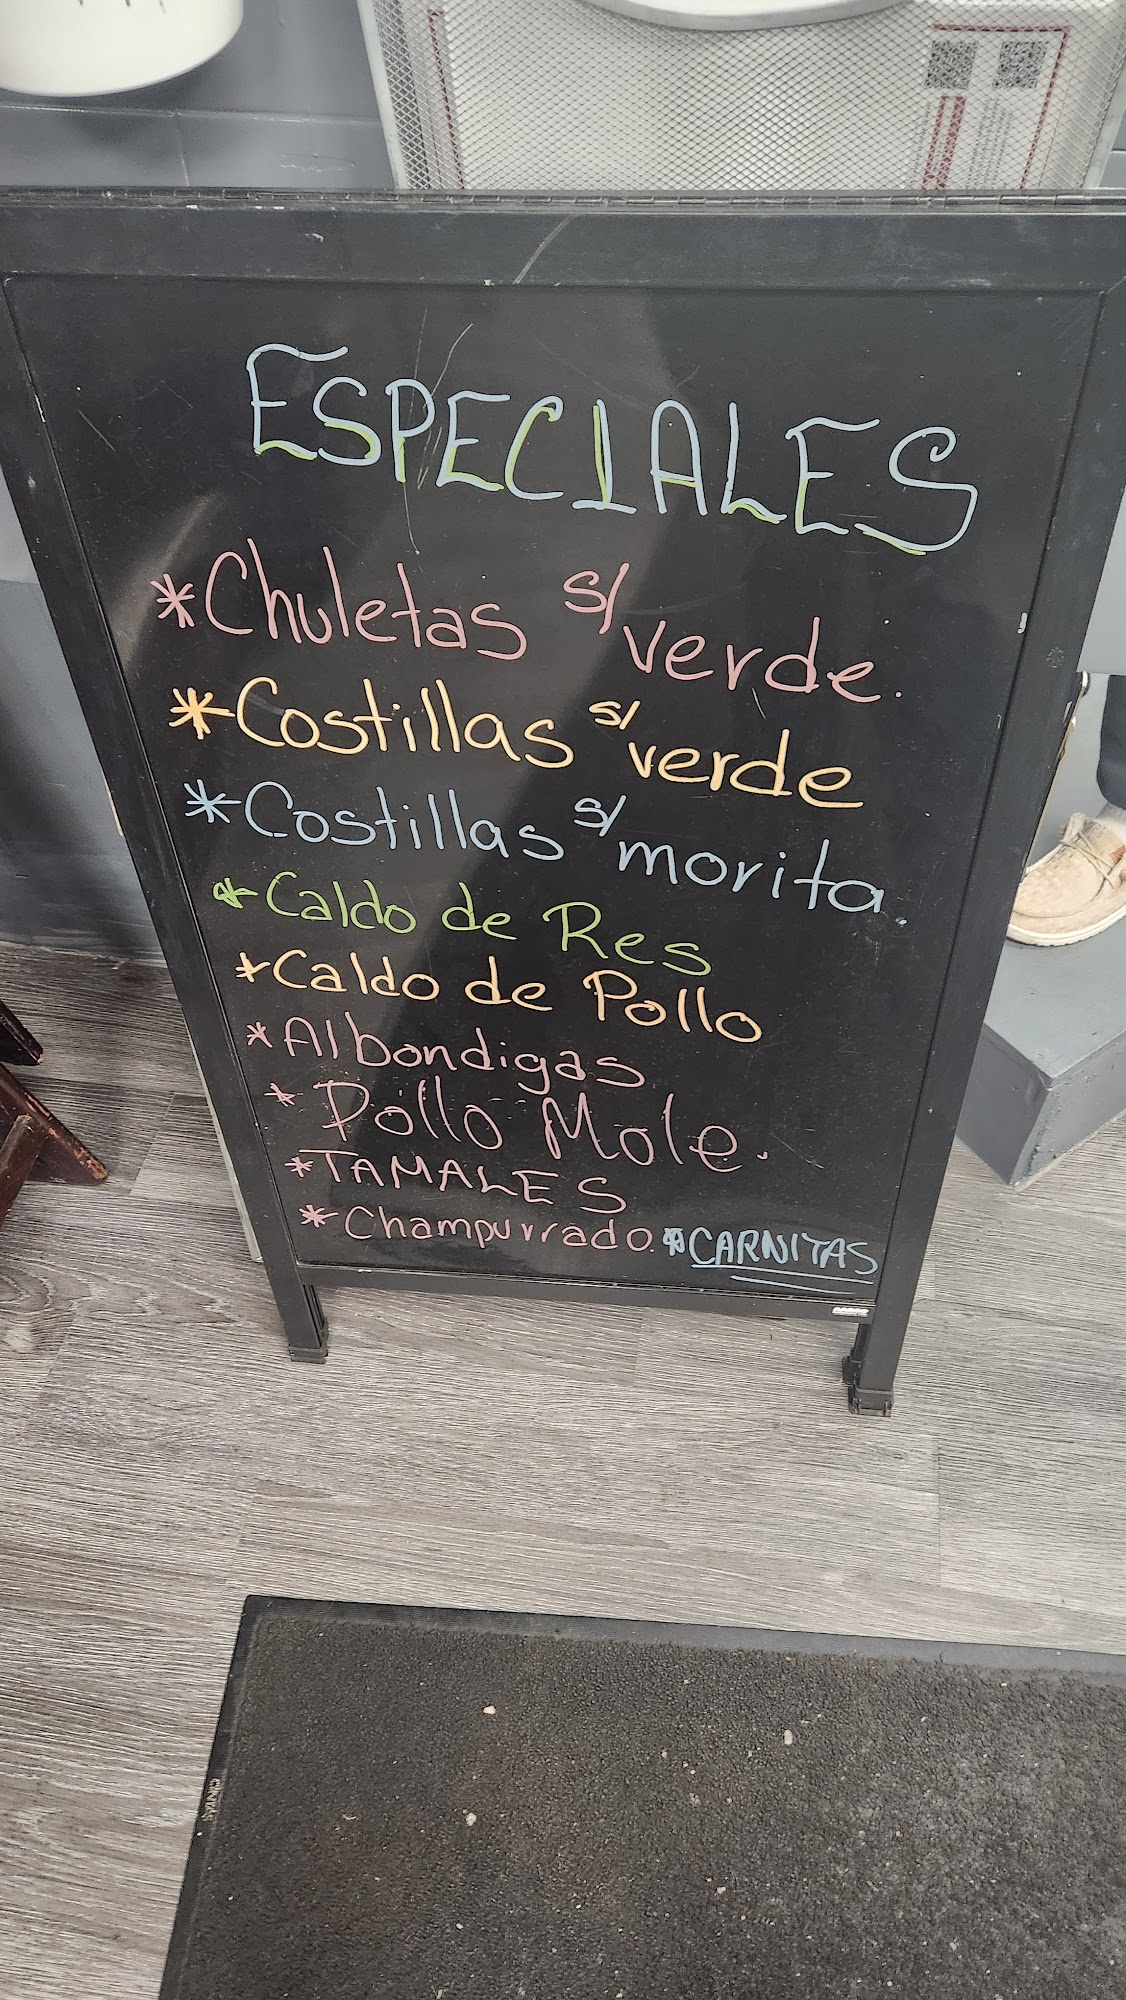 ESPECIALES
*Chuletas s/verde.
*Costillas s/verde
*Costillas s/morita.
*Caldo de Res
*Caldo de Pollo
*Albondigas
*Pollo Mole.
*TAMALES
*Champurrado. *CARNITAS
CINTAS